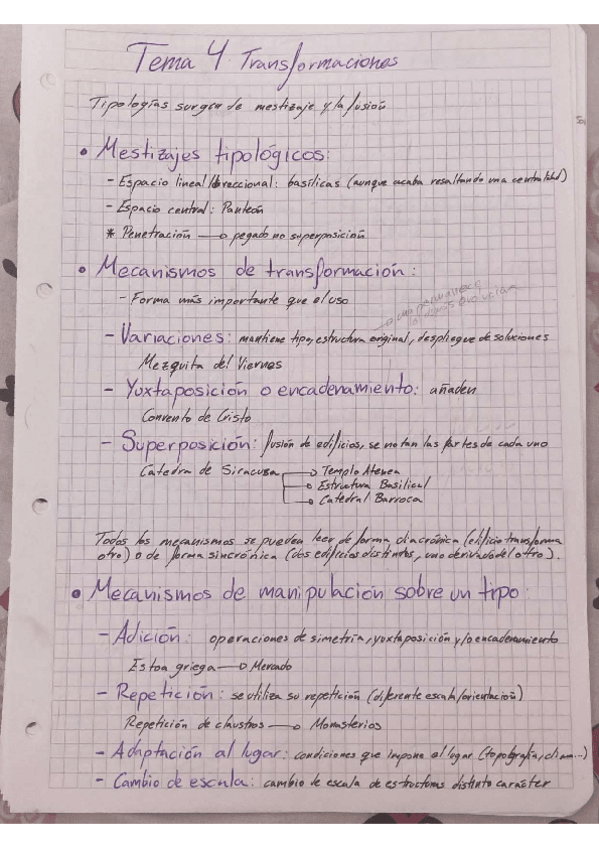 Tema 4 Transformaciones
Tipologías surgen de mestizaje y la fusión
• Mestizajes tipológicos:
- Espacio lineal/direccional: basílicas (aunque acaba resaltando una centralidad)
- Espacio central: Panteón
* Penetración → pegado no superposición
• Mecanismos de transformación:
- Forma más importante que el uso
evolución
- Variaciones: mantiene tipo, estructura original, despliegue de soluciones
Mezquita del Viernes
- Yuxtaposición o encadenamiento: añaden
Convento de Cristo
- Superposición: fusión de edificios, se notan las partes de cada uno
Catedra de Siracusa → Templo Atenea
→ Estructura Basilical
→ Catedral Barroca
Todos los mecanismos se pueden leer de forma diacrónica (edificio transforma
otro) o de forma sincrónica (dos edificios distintos, uno derivado del otro).
• Mecanismos de manipulación sobre un tipo:
- Adición: operaciones de simetría, yuxtaposición y/o encadenamiento
Estoa griega → Mercado
- Repetición: se utiliza su repetición (diferente escala/orientación)
Repetición de claustros → Monasterios
- Adaptación al lugar: condiciones que impone el lugar (topografía, clima...)
- Cambio de escala: cambio de escala de estructuras distinto carácter